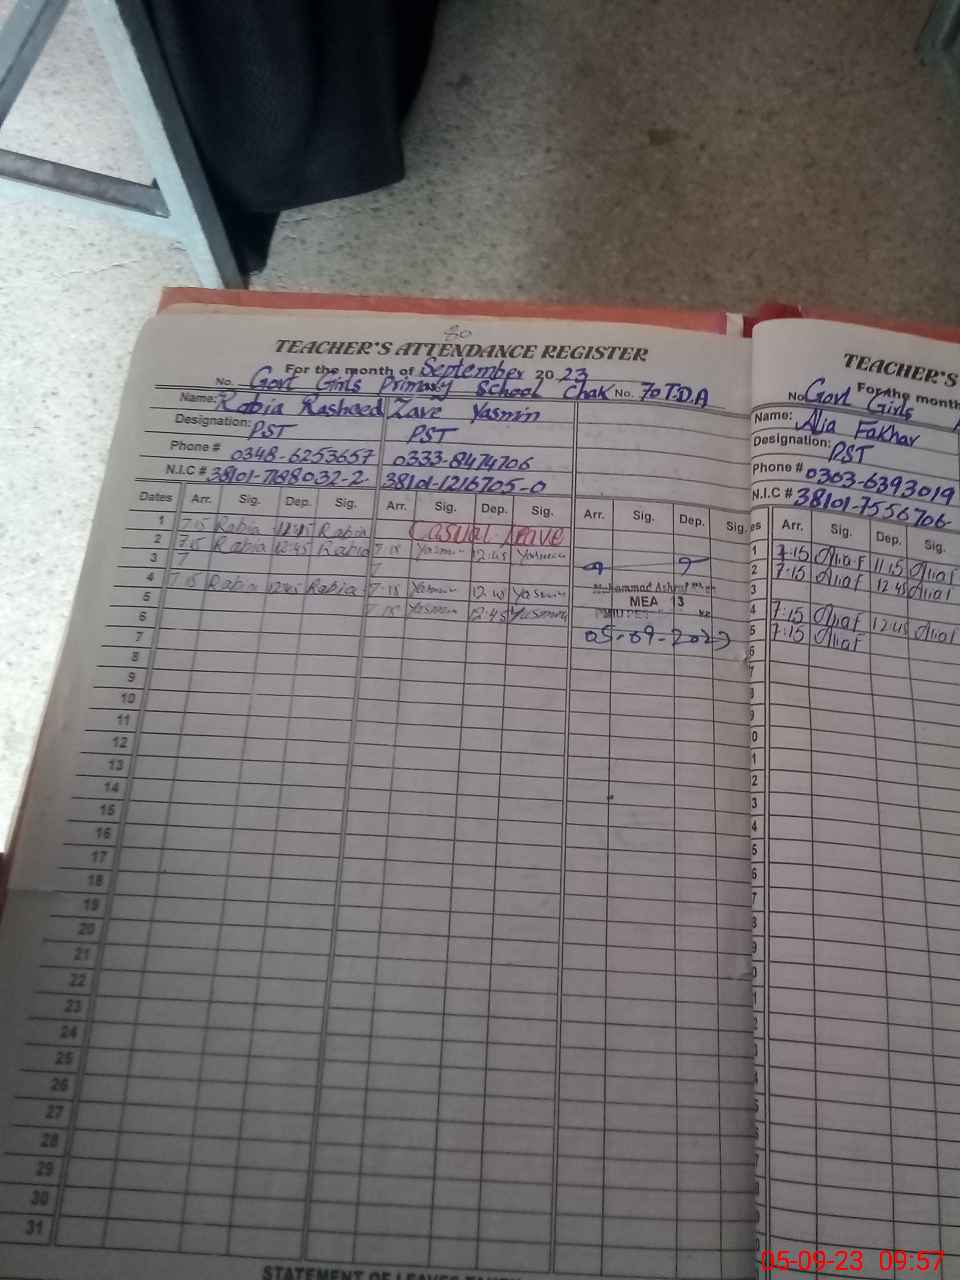 80
TEACHER'S ATTENDANCE REGISTER
For the month of September 2023
No. Govt Girls Primary School Chak No. 70 T.D.A
Name: Rabia Rasheed Zave Yasmin
Designation: PST PST
Phone # 0348-6253657 0333-8474706
N.I.C # 38101-7198032-2 38101-1216705-0
Dates Arr. Sig. Dep. Sig. Arr. Sig. Dep. Sig. Arr. Sig. Dep. Sig.
1 7:15 Rabia 11:15 Rabia Casual Leave
2 7:15 Rabia 12:45 Rabia 7:15 Yasmin 12:45 Yasmin
3
4 7:15 Rabia 12:45 Rabia 7:15 Yasmin 12:45 Yasmin
5 7:15 Yasmin 12:45 Yasmin
6
Muhammad Ashraf
MEA 13
05-09-2023
7
8
9
10
11
12
13
14
15
16
17
18
19
20
21
22
23
24
25
26
27
28
29
30
31
STATEMENT OF LEAVES
TEACHER'S
For the month
No. Govt Girls
Name: Alia Fakhar
Designation: PST
Phone # 0303-6393019
N.I.C # 38101-7556706-
es Arr. Sig. Dep. Sig.
1 7:15 Aliaf 11:15 Aliaf
2 7:15 Aliaf 12:45 Aliaf
3
4 7:15 Aliaf 12:45 Aliaf
5 7:15 Aliaf
6
7
8
9
0
1
2
3
4
5
6
7
8
9
0
1
2
05-09-23 09:57